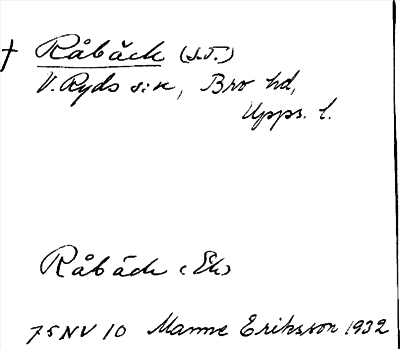 † Råbäck (s.f.)
V. Ryds s:n, Bro hd,
Upps. l.
Råbäck (Ek)
75NV 10 Manne Eriksson 1932